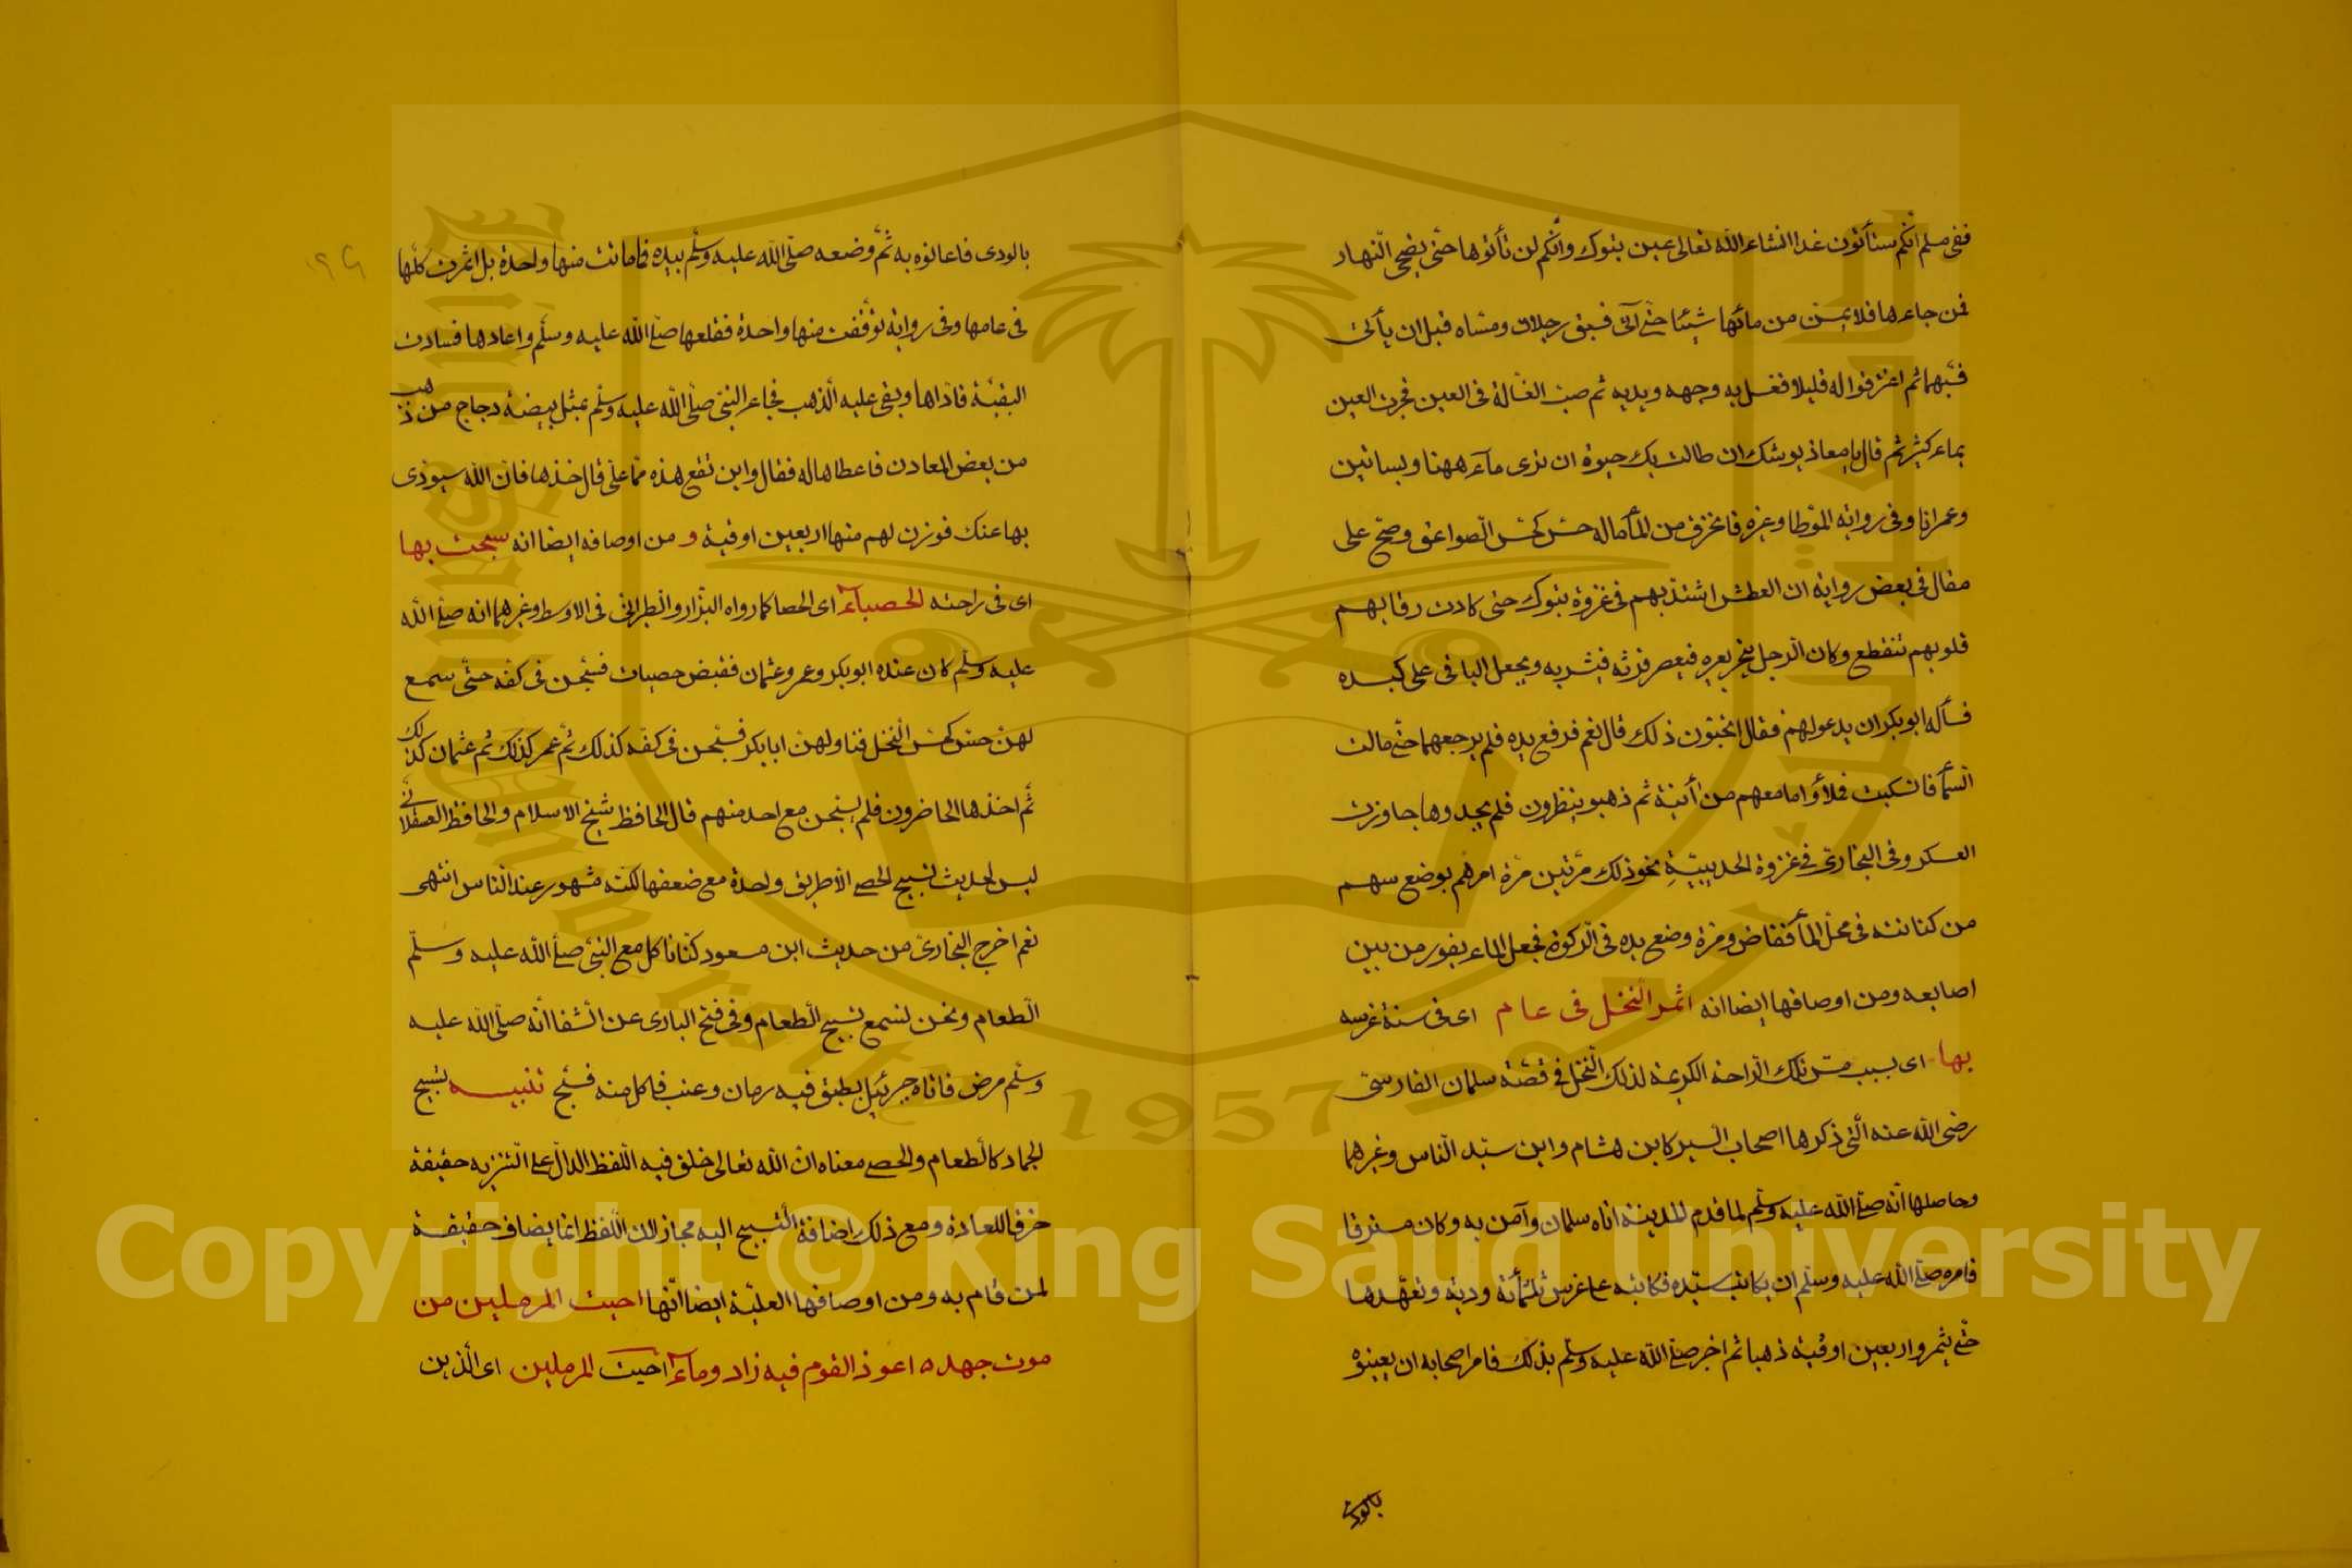 ففى مسلم انكم ستأتون غدا انشاء الله تعالى عين تبوك وانكم لن تأتوها حتى يضحى النهار
فمن جاءها فلا يمسّ من مائها شيئا حتى آتى فسبق رجلان ومسّاه قبل ان يأتى
فسبّهما ثم اغترفوا له قليلا فغسل به وجهه ويديه ثم صبّ الغسالة فى العين فجرت العين
بماء كثير ثم قال يا معاذ يوشك ان طالت بك حيوة ان ترى ماء ههنا وبساتين
وعمرانا وفى رواية الموطا وغيره فانخرق من المأماله حسّ كحسّ الصواعق وصحّ على
مقال فى بعض رواية ان العطش اشتدّ بهم فى غزوة تبوك حتى كادت رقابهم
قلوبهم تنقطع وكان الرجل ينحر بعيره فيعصر فرثه فيشربه ويجعل الباقى على كبده
فسأله ابو بكر ان يدعو لهم فقال اتحبّون ذلك قال نعم فرفع يديه فلم يرجعهما حتى مالت
السمأ فانسكبت فملأوا ما معهم من أنية ثم ذهبو ينظرون فلم يجدوها جاوزت
العسكر وفى البخارى فى غزوة الحديبيّة نحو ذلك مرّتين مرّة امرهم بوضع سهم
من كنانته فى محلّ المأ ففاض ومرة وضع يده فى الركوة فجعل الماء يفور من بين
اصابعه ومن اوصافها ايضا انه اثمر النخل فى عام اى فى سنة غرسه
بها اى بسبب مسّ تلك الراحة الكريمة لذلك النخل فى قصّة سلمان الفارسىّ
رضى الله عنه الّتى ذكرها اصحاب السير كابن هشام وابن سيّد النّاس وغيرهما
وحاصلها انّه صلى الله عليه وسلّم لما قدم المدينة اتاه سلمان وآمن به وكان مسترقا
فامره صلى الله عليه وسلّم ان يكاتب سيّده فكاتبه على غرس ثلثمائة وديّة وتعهّدها
حتى يثمر واربعين اوقية ذهبا ثم اخبر صلى الله عليه وسلّم بذلك فامر اصحابه ان يعينوه
بالودى
بالودى فاعانوه به ثمّ وضعه صلّى الله عليه وسلّم بيده فما ماتت منها واحدة بل اثمرت كلّها
فى عامها وفى رواية توقّفت منها واحدة فقلعها صلى الله عليه وسلّم واعادها فسادت
البقيّة فادّاها وبقى عليه الذهب فجاء النبىّ صلّى الله عليه وسلّم بمثل بيضة دجاج من ذهب
من بعض المعادن فاعطاها له فقال واين تقع هذه ممّا علىّ قال خذها فانّ الله سيؤدى
بها عنك فوزن لهم منها اربعين اوقية و من اوصافه ايضا انه سبحت بها
اى فى راحته الحصباء اى الحصا كما رواه البزار والطبرانى فى الاوسط وغيرهما انه صلى الله
عليه وسلّم كان عنده ابو بكر وعمر وعثمان فقبض حصيات فسبّحن فى كفّه حتّى سمع
لهنّ حسّ كحسّ النّخل فناولهنّ ابا بكر فسبّحن فى كفّه كذلك ثمّ عمر كذلك ثم عثمان كذلك
ثمّ اخذها الحاضرون فلم يسبّحن مع احد منهم قال الحافظ شيخ الاسلام والحافظ العسقلانى
ليس لحديث تسبيح الحصى الّا طريق واحدة مع ضعفها لكنّه مشهور عند النّاس انتهى
نعم اخرج البخارىّ من حديث ابن مسعود كنّا نأكل مع النبىّ صلى الله عليه وسلّم
الطعام ونحن نسمع تسبيح الطعام وفى فتح البارى عن الشّفا انّه صلّى الله عليه
وسلّم مرض فاتاه جبرئيل بطبق فيه رمان وعنب فاكل منه فسبّح تنبيه تسبيح
الجماد كالطعام والحصى معناه انّ الله تعالى خلق فيه اللّفظ الدالّ على التنزيه حقيقة
خرقا للعادة ومع ذلك اضافة التّسبيح اليه مجاز لان اللّفظ انما يضاف حقيقة
لمن قام به ومن اوصافها العليّة ايضا انّها احيت المرملين من
موت جهد ه اعوذ القوم فيه زاد وماء احيت المرملين اى الّذين